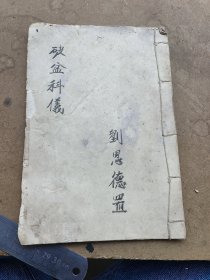 破盆科儀
劉恩德置